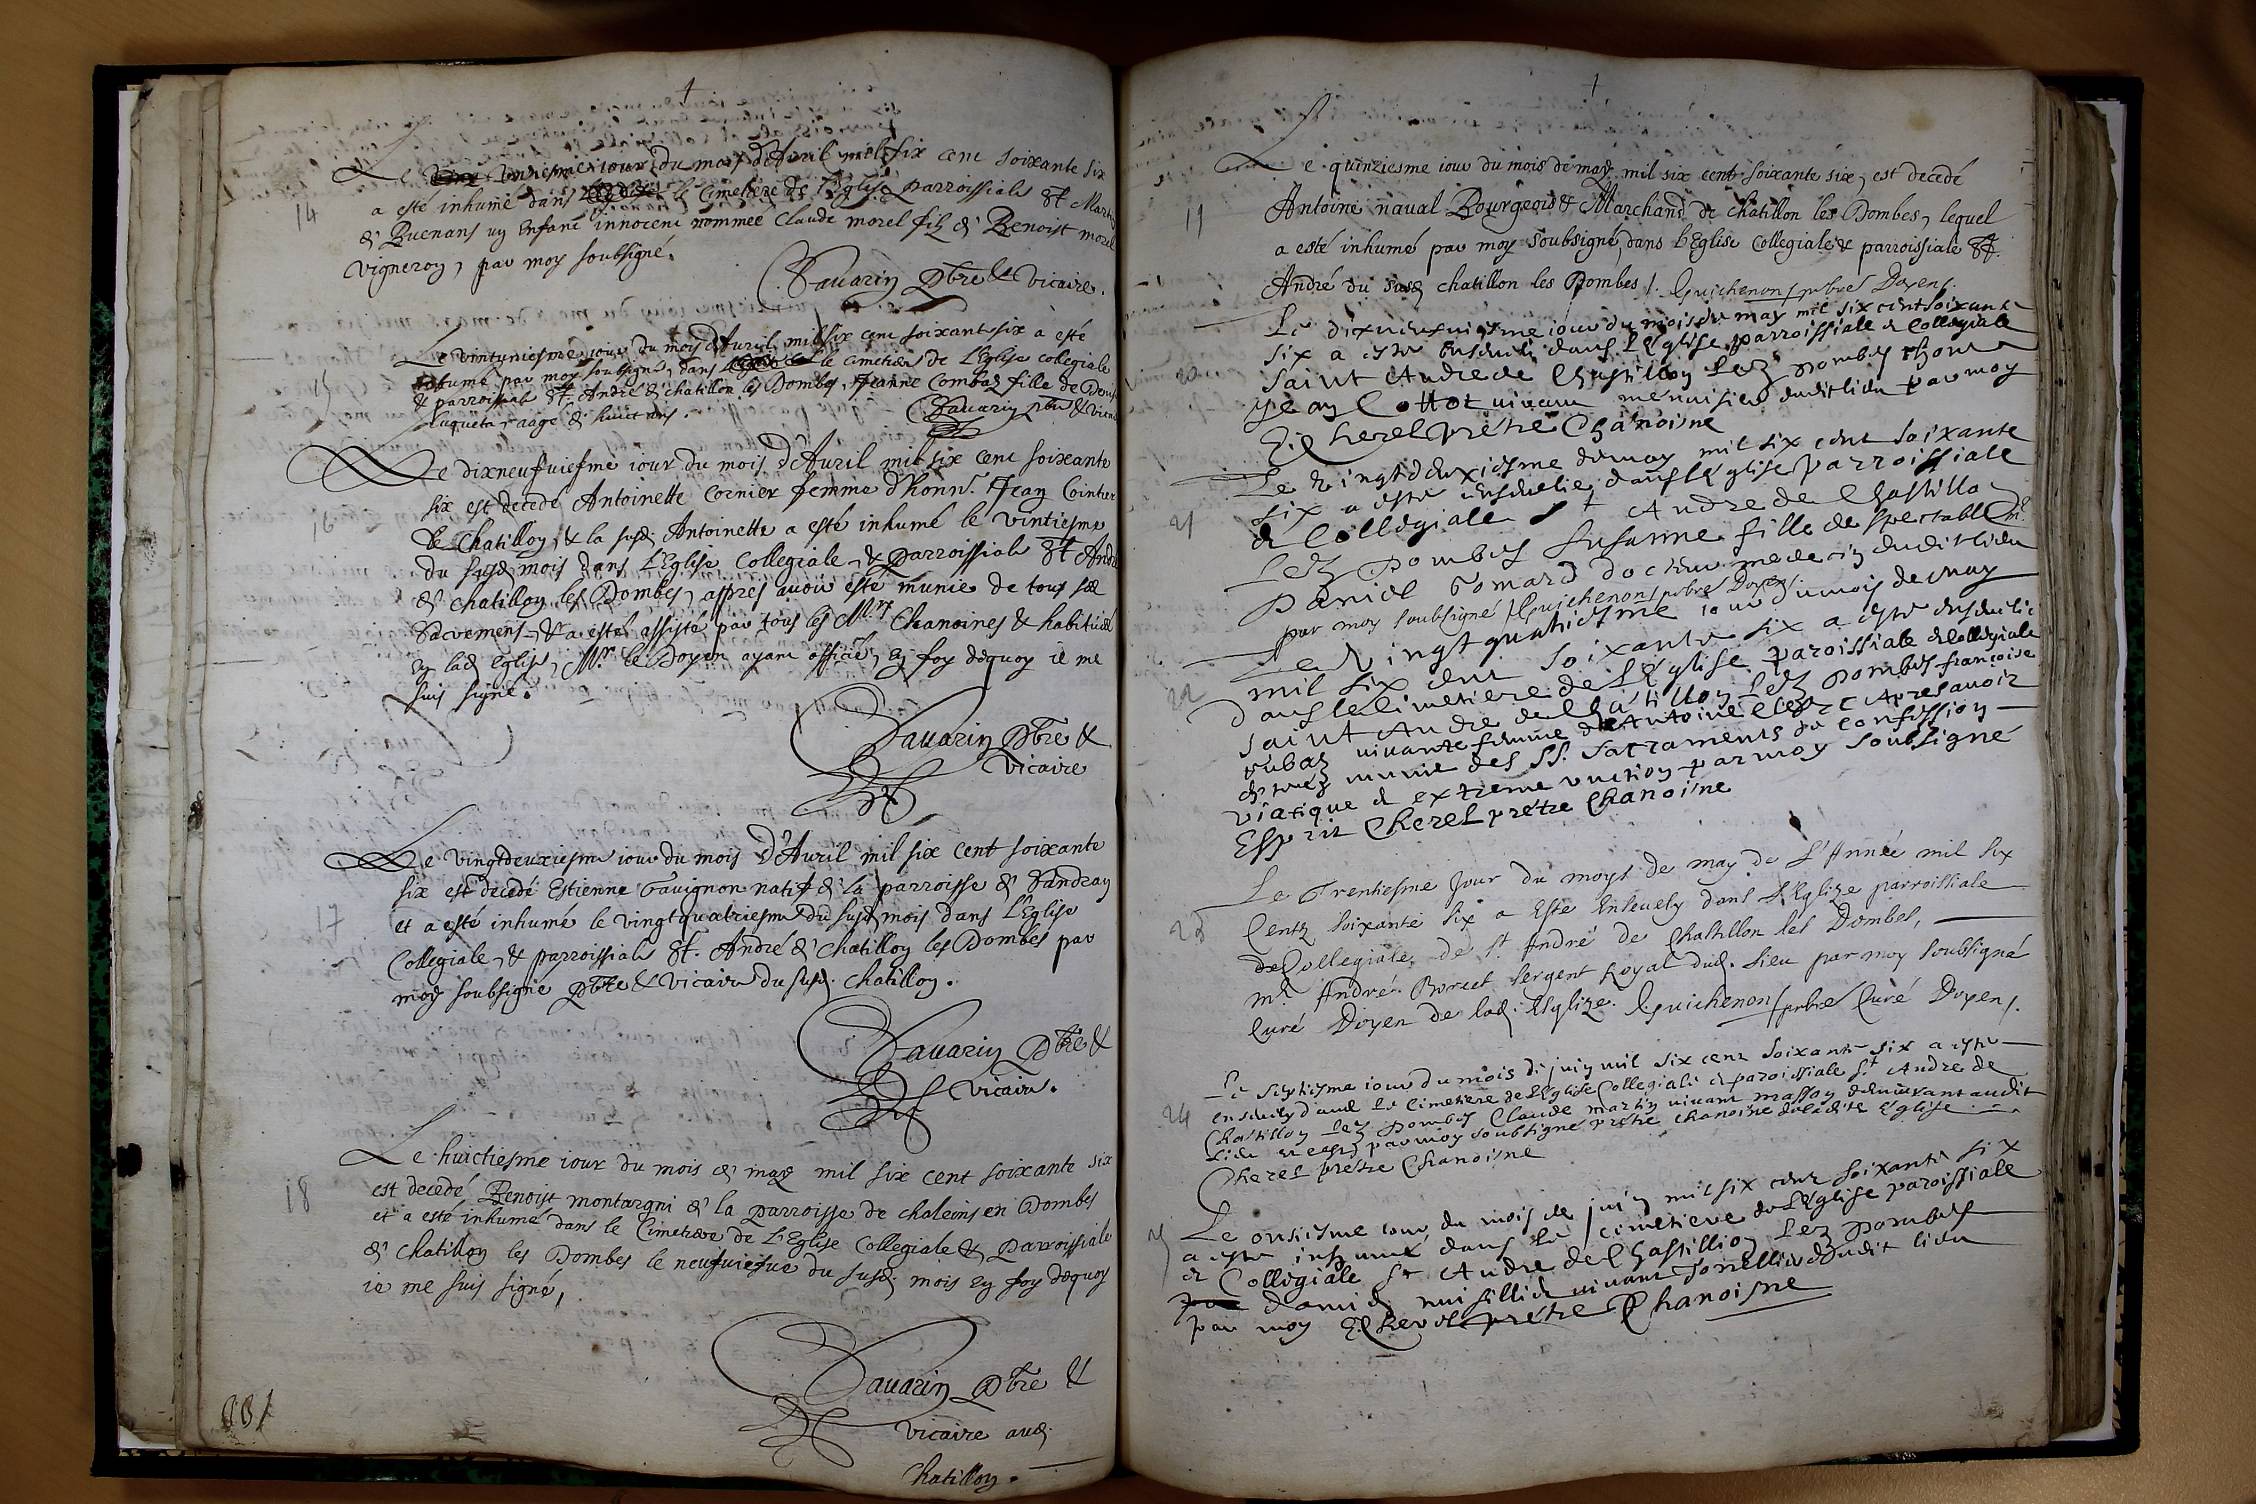 Le unziesme iour du mois d'Auril mil six cent soixante six
a esté inhumé dans le Cimetiere de l'Eglise parroissiale St. Martin
14
de Buenans un Enfant innocent nommée Claude morel filz de Benoist morel
vigneron, par moy soubsigné.
Sauarin pbre & vicaire.
Le vintuniesme iour du mois d'Auril mil six cent soixant six à esté
15
inhumé par moy soubsigné, dans le cimetiere de L'Eglise collegiale
& parroissiale St. André de chatillon les Dombes, Jeanne Combaz fille de
aagé de huict ans.
Sauarin pbre & vicaire
Le dixneufuiesme iour du mois d'Auril mil six cent soixante
16
six est decedé Antoinette Cornier femme d'honn. Jean Cointier
de Chatillon, & la susd. Antoinette a esté inhumé le vintiesme
du susd. mois dans L'Eglise Collegiale & parroissiale St. André
de chatillon les Dombes, appres auoir esté munie de tous sae
Sacremens, & a esté assisté par tous les Mrs. Chanoines & habitués
en lad. Eglise, Mr. le Doyen ayant officié, en foy dequoy ie me
suis signé.
Sauarin pbre &
vicaire
Le vingtdeuxiesme iour du mois d'Auril mil six cent soixante
six est decedé Estienne Gauignon natif de la parroisse de Sandran
17
et a esté inhumé le vingtquatriesme du susd. mois dans L'Eglise
Collegiale, & parroissiale St. André de chatillon les Dombes par
moy soubsigné pbre & vicaire du susd. chatillon.
Sauarin pbre &
vicaire.
Le huictiesme iour du mois de may mil six cent soixante six
18
est decedé Benoist montargni de la parroisse de chaleins en Dombes
et a esté inhumé dans le Cimetiere de L'Eglise Collegiale & parroissiale
de chatillon les Dombes le neufuiesme du susd. mois en foy dequoy
ie me suis signé,
Sauarin pbre &
vicaire aud.
chatillon.
Le quinziesme iour du mois de may mil six cent soixante six, est decedé
19
Antoine naual Bourgeois & Marchand de chatillon les Dombes, lequel
a esté inhumé par moy soubsigné, dans l'Eglise Collegiale & parroissiale St.
André du susd. chatillon les Dombes /. Guichenon pbre Doyen.
Le dixneufuiesme iour du mois de may mil six cent soixante
six a este enseueli dans L'Eglise parroissialle & Collegiale
20
saint Andre de Chastillon Lez Dombes
Jean Cottot uiuant menuisier dudit lieu par moy
E. Cherel Prètre Chanoine
Le vingtdeuxiesme de may mil six cent soixante
six a este enseuelie dans L'Eglise parroissiale
21
& Collegiale St Andre de Chastillon
Lez Dombes Susanne fille de spectable Mr.
Daniel Gomard docteur medecin dudit lieu
par moy soubsigné / Guichenon pbre Doyen.
Le vingtquatriesme iour du mois de may
mil six cent soixante six a este enseueli
22
dans le Cimetiere de L'Eglise paroissiale & Collegiale
saint Andre de Chatillon Lez Dombes françoise
Dubaz uiuante femme de Antoine Clerc Apres auoir
este munie des SS. Sacraments de confession
viatique & extreme unction par moy soubsigné
Esprit Cherel prétre Chanoine
Le Trentiesme Jour du moys de may de L'Année mil six
23
Centz soixante six a Esté Enseuely dans L'Eglize parroissiale
& Collegiale de St. André de Chastillon les Dombes,
Mr. André Boruet sergent Royal dud. lieu par moy soubsigné
Curé Doyen de lad. Esglize. Guichenon pbre Curé Doyen.
Le septiesme iour du mois de juin mil six cent soixante six a este
24
enseuely dans Le Cimetiere de L'Eglise Collegiale & paroissiale St Andre de
Chatillon Lez Dombes Claude martin uiuant masson demeurant audit
lieu par moy soubsigné prètre chanoine de la dite Eglise
Cherel prètre Chanoine
Le onsiesme iour du mois de juin mil six cent soixante six
25
a este inhumé dans Le cimetiere de L'Eglise paroissiale
& Collegiale St Andre de Chastillion Lez Dombes
uiuant Tonellier dudit lieu
par moy E. Cherel prètre Chanoine